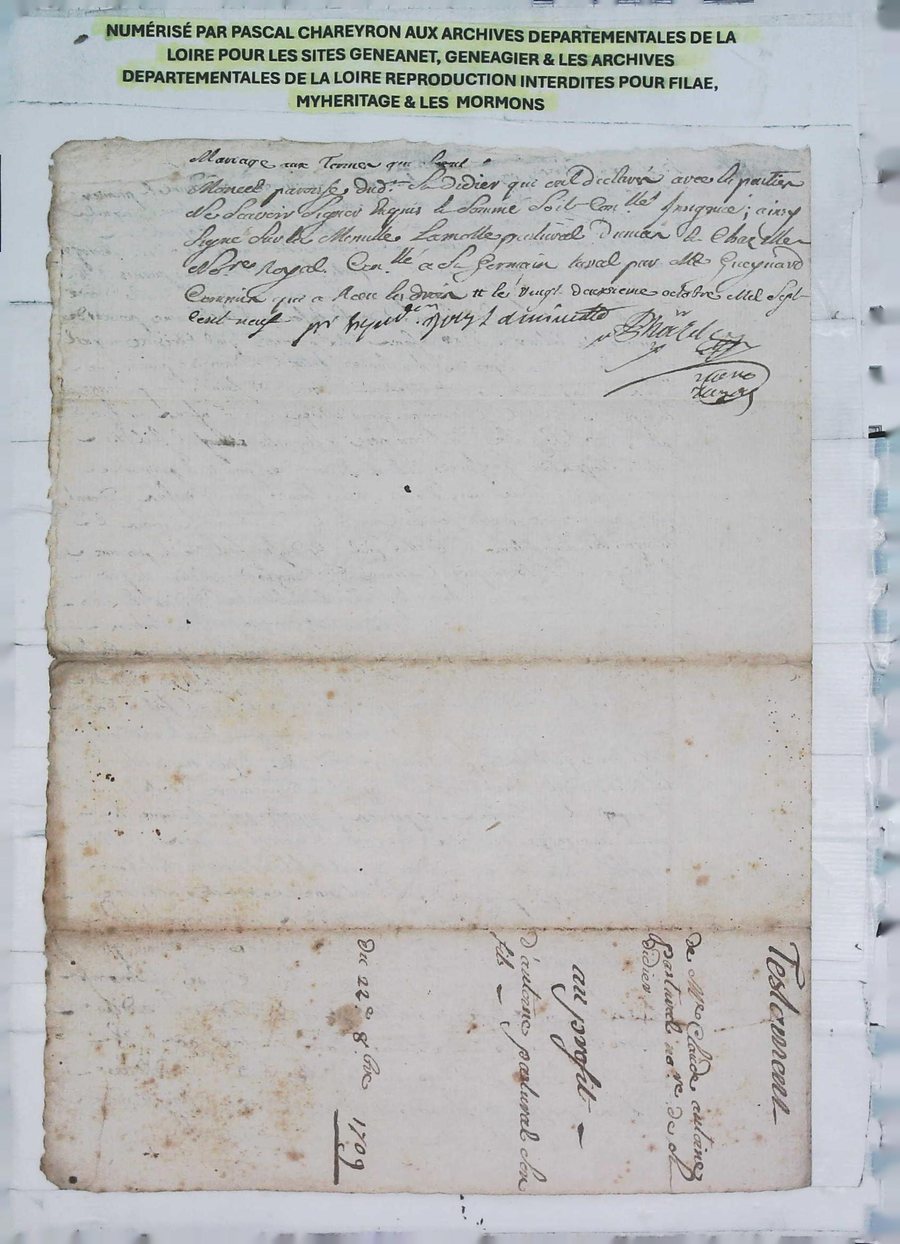 NUMÉRISÉ PAR PASCAL CHAREYRON AUX ARCHIVES DEPARTEMENTALES DE LA
LOIRE POUR LES SITES GENEANET, GENEAGIER & LES ARCHIVES
DEPARTEMENTALES DE LA LOIRE REPRODUCTION INTERDITES POUR FILAE,
MYHERITAGE & LES MORMONS
Mariage aux Termes qui
paroisse dud. St Didier qui ont declaré avec les parties
Ne Scavoir Signer Enquis & Somme Soit Con.lle Insignué; ainsy
Signé Sur la Minutte Lamotte pastural
No.re Royal. Con.lle a St Germain laval par Me Gueynard
Commis qui a Receu les droits le vingt deuxieme octobre Mil Sept
Cent neuf
Testament
de Mre Claude antoine
pastural no.re de St
didier
au profit
d'antoine pastural son
fils
du 22e 8.bre 1709